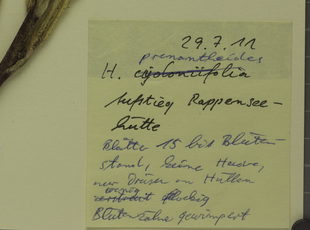 29.7.11
prenanthoides
H. cydoniifolia
Aufstieg Rappensee-
hütte
Blätter 15 bis Blüten-
stand, keine Haare,
nur Drüsen an Hüllen
wenig
verstreut flockig
Blütenzähne gewimpert